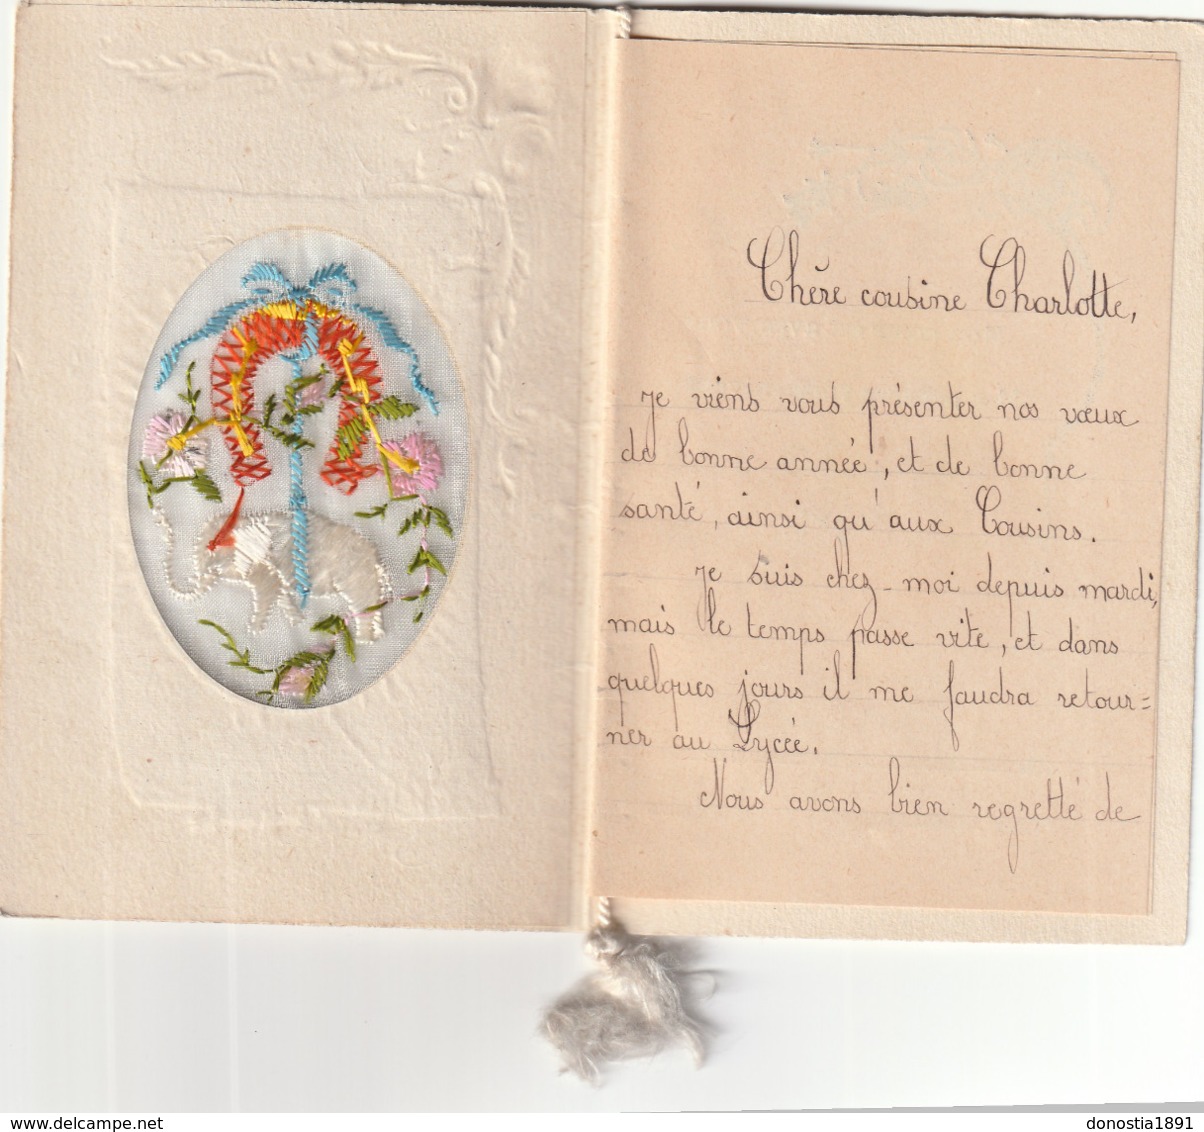 Chère cousine Charlotte,
Je viens vous présenter nos vœux
de bonne année, et de bonne
santé, ainsi qu'aux Cousins.
Je suis chez-moi depuis mardi,
mais le temps passe vite, et dans
quelques jours il me faudra retour=
ner au Lycée.
Nous avons bien regretté de
www.delcampe.net
donostia1891